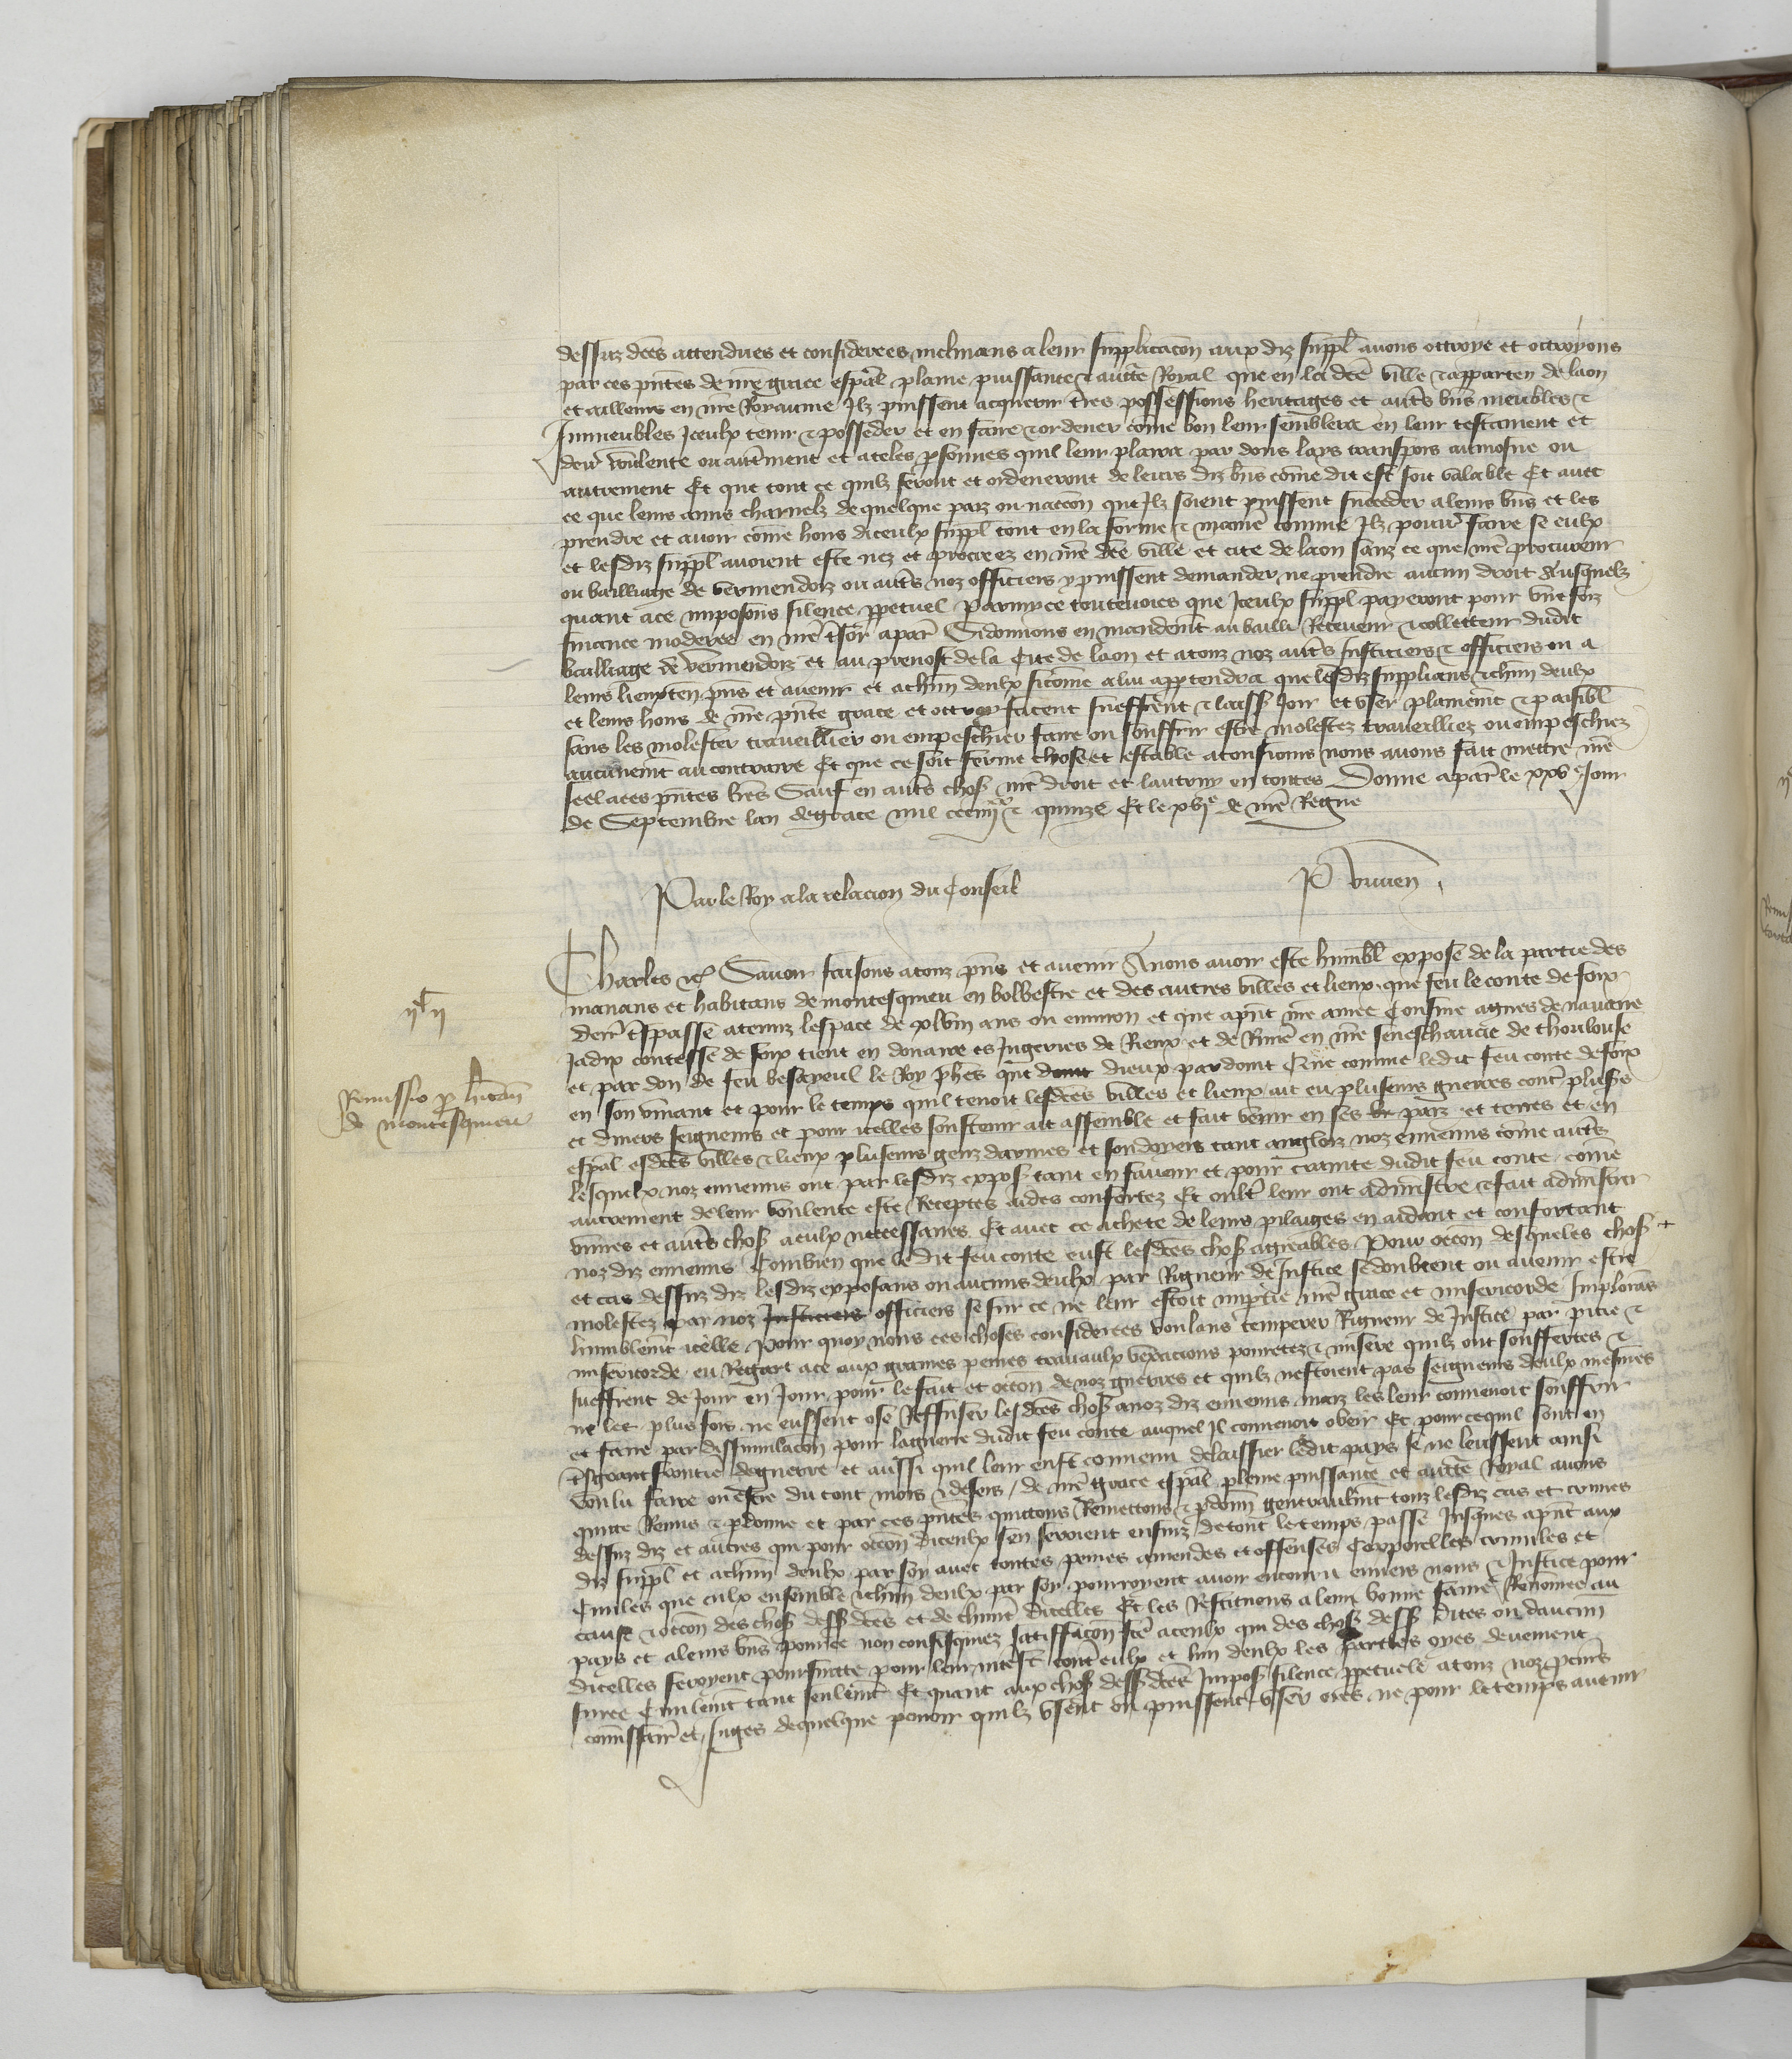 dessuz dces attendues et considerees inclinans a leur supplicacon aux diz suppl avons ottroye et ottroyons
par ces pntes de nre grace espal plaine puissance & aucte Royal que en la dce ville & apparten de laon
et ailleurs en nre Royaume Ilz puissent acquerir tres possessions heritages et auts bns meubles &
Inmeubles Iceulx tenir & posseder et en faire & ordener come bon leur semblera en leur testament et
dere voulente ou autment et a teles psonnes quil leur plaira par dons lays transpors aumosne ou
autrement Et que tout ce quilz feront et ordeneront de leurs diz bns come dit est soit valable Et avec
ce que leurs amis charnelz de quelque pais ou nacion que Ilz soient puissent succeder a leurs bns et les
prendre et avoir come hoirs diceulx suppl tout en la forme & maniere comme Ilz pourr faire se eulx
et lesdiz suppl avoient este nez et procreez en nre dce ville et cite de laon sanz ce que nre procureur
ou bailliage de vermendois ou auts noz officiers y puissent demander ne prendre aucun droit Ausquelz
quant a ce imposons silence ppetuel Parmy ce toutevoies que Iceulx suppl payeront pour une foiz
finance moderee en nre tsor a paris Si donnons en mandemt au bailli Receveur & collecteur dudit
bailliage de vermendois et au prevost de la Cite de laon et a touz noz auts Justiciers & officiers ou a
leurs lieuxten pns et avenir et a chun deulx si come a lui apptendra que lesdiz supplians & chun deulx
et leurs hoirs de nre pnte grace et ottroy facent sueffrent & laissent Joir et user plainemt & paisibl
sans les molester traveillier ou empeschier faire ou souffrir estre molestez traveilliez ou empeschiez
aucunemt au contraire Et que ce soit ferme chose et estable a tousiours nous avons fait mettre nre
seel a ces pntes lres Sauf en auts chos nre droit et lautruy en toutes Donne a paris le xxve Jour
de Septembre lan de grace mil ccc iiijxx & quinze Et le xvje de nre Regne
Par le Roy a la relacion du Conseil P vivien
Charles &c Savoir faisons a touz pns et avenir A nous avoir este humbl expose de la partie des
manans et habitans de montesquieu en bolbestre et des autres villes et lieux que feu le conte de foix
derr tspasse a tenuz lespace de xlviij ans ou environ et que a pnt nre amee Cousine agnes de navarre
Jadix contesse de foix tient en douaire es Jugeries de Rieux et de Riviere en nre seneschaucie de thoulouse
et par don de feu besayeul le Roy phes qui dont dieux pardoint Que comme ledit feu conte de foix
en son vivant et pour le temps quil tenoit lesdces villes et lieux ait eu plusieurs guerres cont pluss
et divers seigneurs et pour icelles soustenir ait assemble et fait venir en ses pais et terres et en
espal esdces villes & lieux plusieurs genz darmes et souldoyers tant anglois noz ennemis come auts
lesquelx noz ennemis ont par lesdiz expos tant en faveur et pour crainte dudit feu conte come
autrement de leur voulente este Receptes aides confortez Et oult leur ont administre & fait administrer
vivres et auts chos a eulx necessaires Et avec ce achete de leurs pilaiges en aidant et confortant
noz diz ennemis Combien que le dit feu conte eust lesdces chos agreables Pour occon desqueles chos +
et cas dessuz diz lesdiz exposans ou aucuns deulx par Rigueur de Justice se doubtent ou avenir estre
molestez par noz Justiciers officiers se sur ce ne leur estoit imptie nre grace et misericorde Implorans
humblemt icelle Pour quoy nous ces choses considerees voulans temperer Rigueur de Justice par pitie &
misericorde eu Regart a ce aux graves peines travaulx vexacions povretez & misere quilz ont souffertes &
sueffrent de Jour en Jour pour le fait et occon de noz guerres et quilz nestoient pas seigneurs deulx mesmes
ne les plus fors ne eussent ose Reffuser lesdces chos a noz diz ennemis maiz les leur convenoit souffrir
et faire par dissimulacon pour la guerre dudit feu conte auquel Il convenoit obeir Et pour ce quil sont en
frontiere de guerre et aussi quil leur eust convenu delaissier ledit pays se ne leussent ainsi
voulu faire ou estre du tout mors & desers / de nre grace espal pleine puissance et aucte Royal avons
quitte Remis & pdonne et par ces pntes quittons Remettons & pdonn generaulmt touz lesdiz cas et crimes
dessuz diz et autres qui pour occon diceulx sen seroient ensuiz de tout le temps passe Jusques a pnt aux
diz suppl et a chun deulx par soy avec toutes peines amendes et offenses Corporelles crimineles et
Civiles que eulx ensemble & chun deulx par soy pourroyent avoir encouru envers nous & Justice pour
cause & occon des chos dess dces et de chune dicelles Et les Restituons a leur bonne fame Renomee au
pays et a leurs bns & povree non confisquiez satiffacon fce a ceulx qui des chos dess dites ou daucun
dicelles feroyent poursuitte pour leur interest cont eulx et lun deulx les parties oyes deuement
Civilemt tant seulemt Et quant aux chos dess dces Impos silence ppetuele a touz noz pcurs
comissaires et Juges de quelque povoir quilz usent ou puissent user ores ne pour le temps avenir
Remissio p hitan
de montesquieu